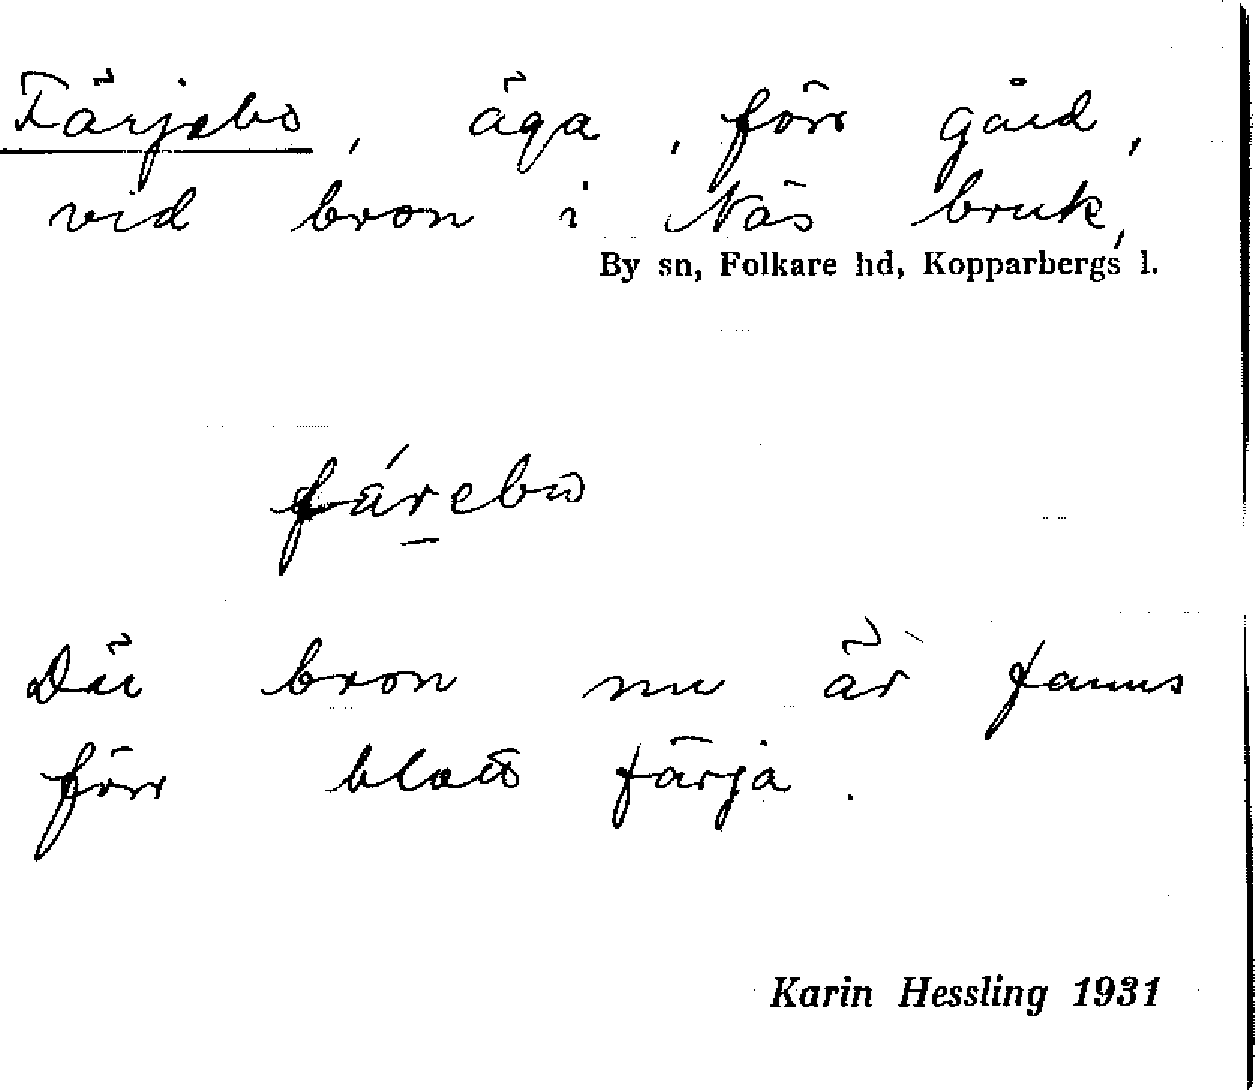 Färjebo, äga, förr gård,
vid bron i Näs bruk,
By sn, Folkare hd, Kopparbergs l.
fä́rebω
Där bron nu är fanns
förr blott färja.
Karin Hessling 1931